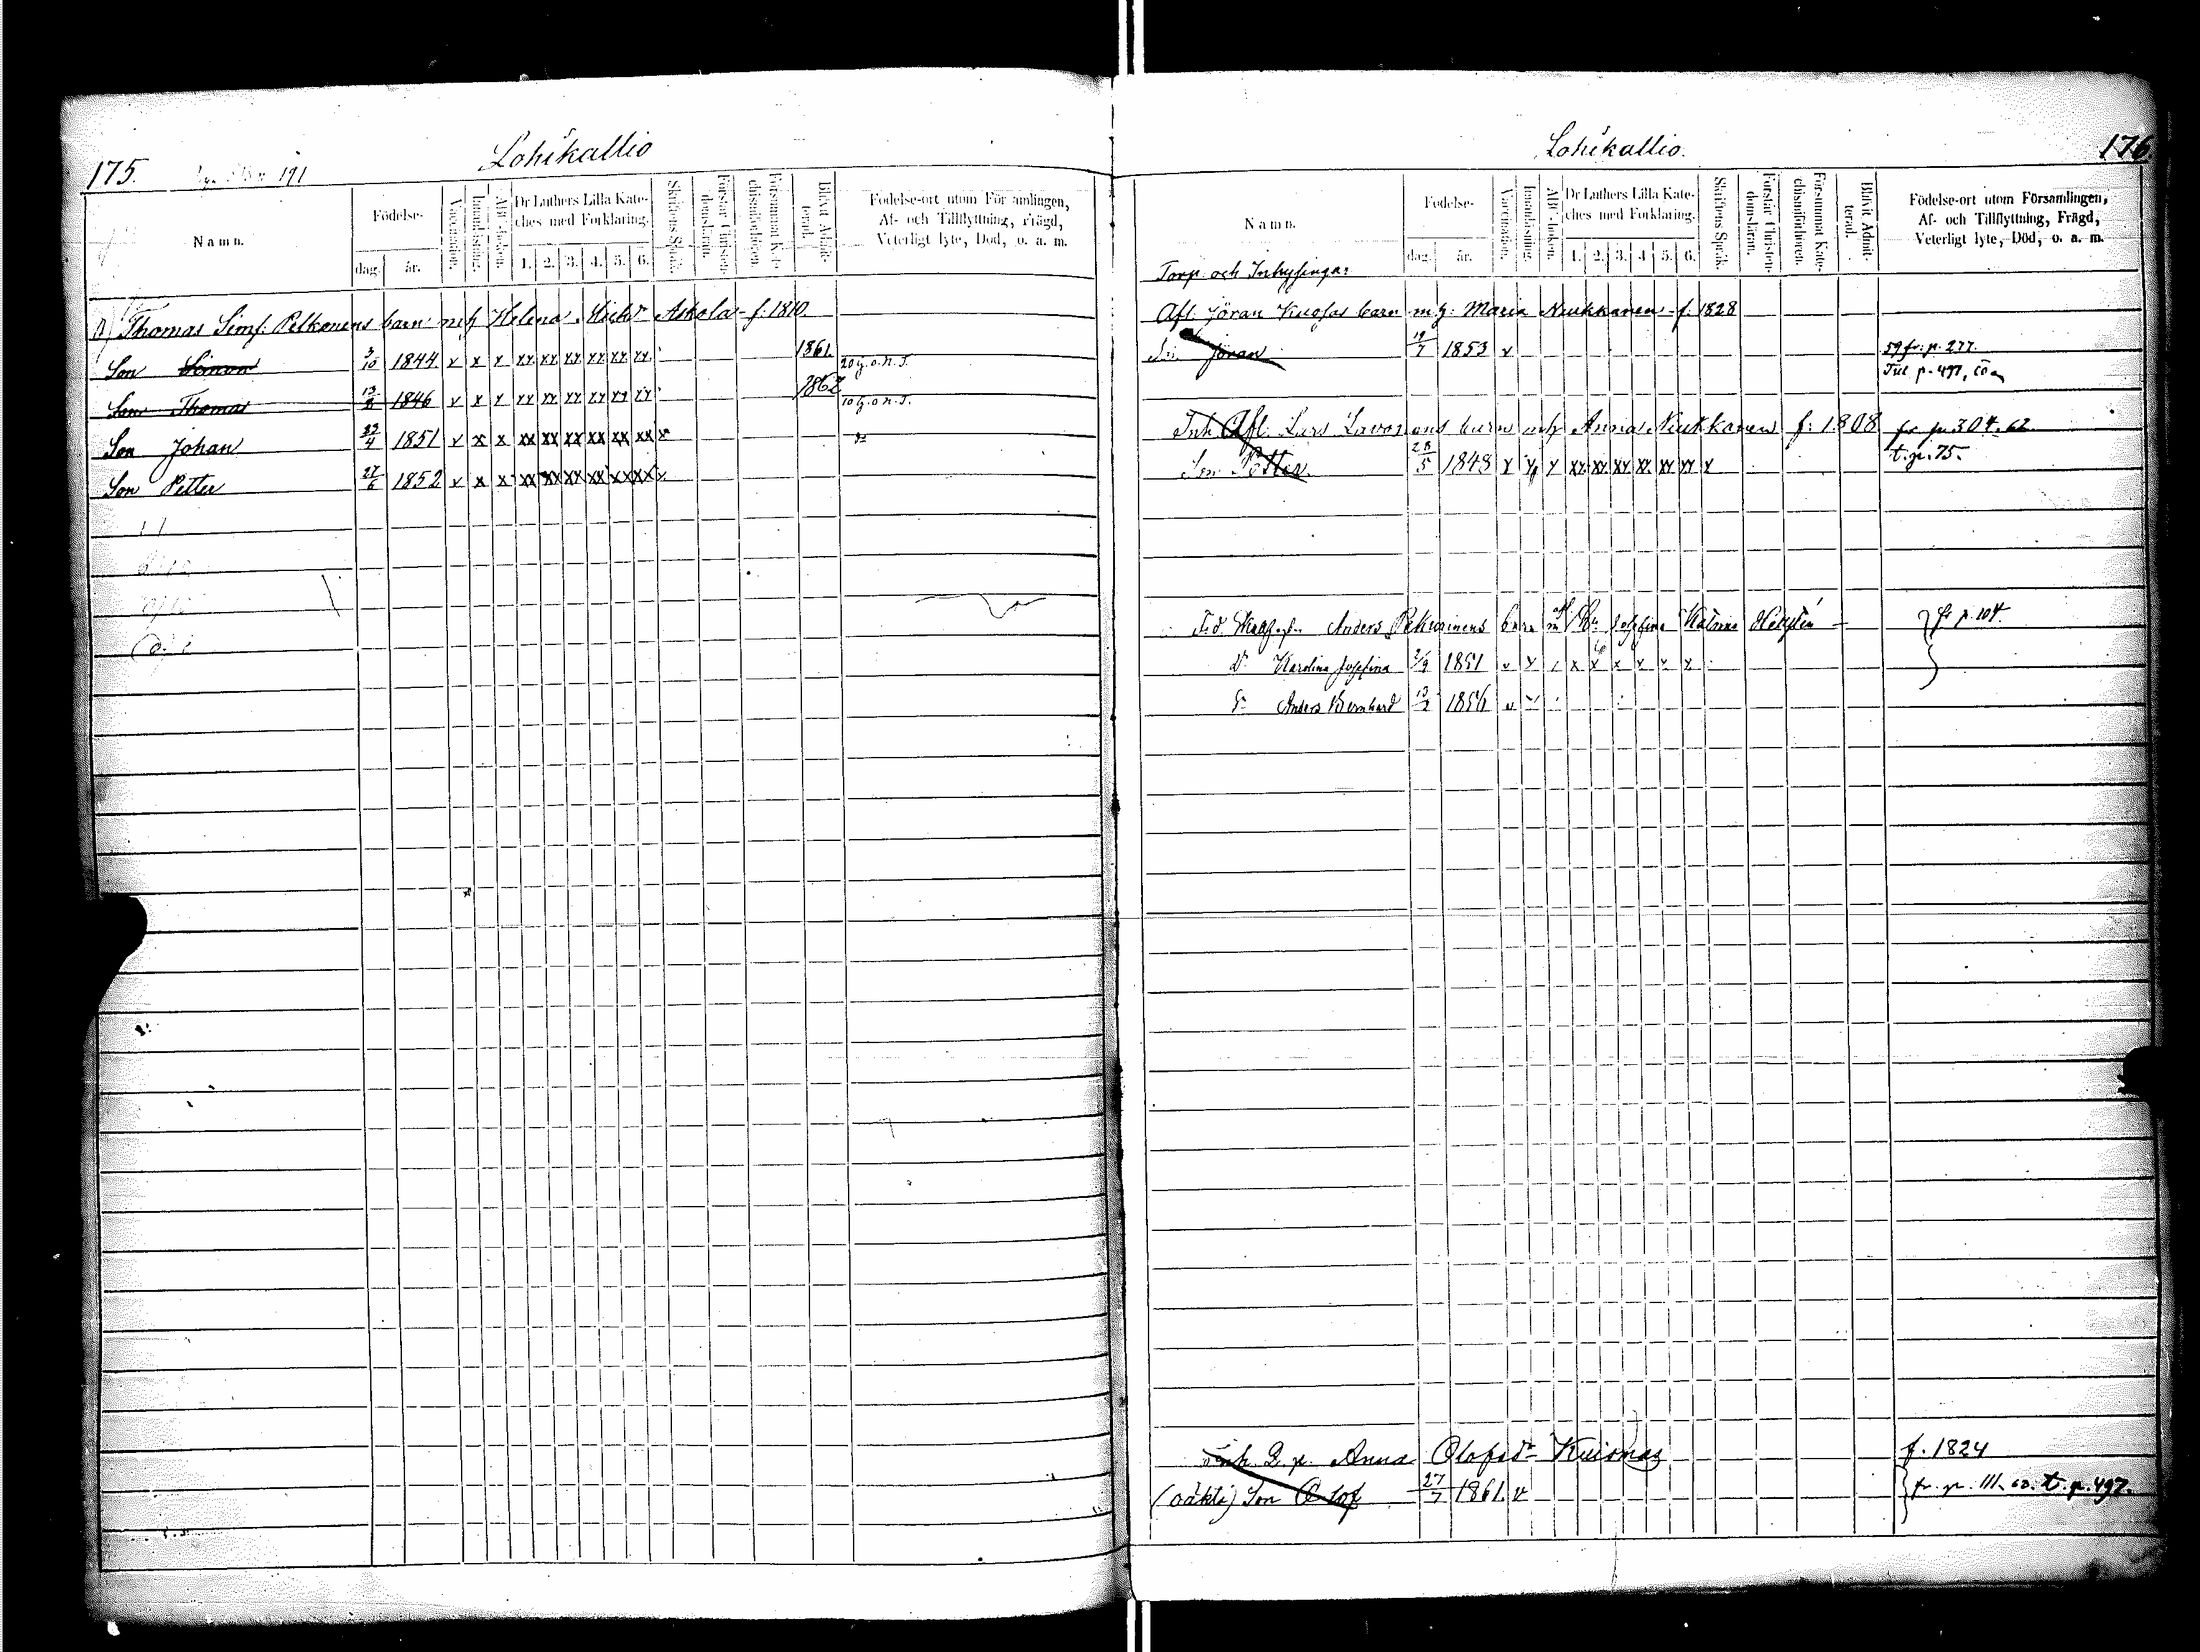 175.
191
Lohikallio
Namn.
Födelse-
dag.
år.
Vaccination.
Innanläsning.
ABC-boken.
Dr Luthers Lilla Kate-
ches med Förklaring.
1. 2. 3. 4. 5. 6.
Skriftens Språk.
Förstår Christen-
domsläran.
Försummat Kate-
chismiförhören.
Blifvit Admit-
terad.
Födelse-ort utom Församlingen,
Af- och Tillflyttning, Frägd,
Veterligt lyte, Död, o. a. m.
Thomas Sims: Pelkonens barn mh Helena Mickdr Askola f. 1810
Son Simon 3/10 1844 v x x xx xx xx xx xx xx 1861 20 g. o. n. T.
Son Thomas 1846 v x x xx xx xx xx xx xx 1862 10 g. o. n. T.
Son Johan 1851 v x x xx xx xx xx xx xx x
Son Petter 27/6 1852 v x x xx xx xx xx xx xx x
Lohikallio.
176
Namn.
Födelse-
dag.
år.
Vaccination.
Innanläsning.
ABC-boken.
Dr Luthers Lilla Kate-
ches med Förklaring.
1. 2. 3. 4. 5. 6.
Skriftens Språk.
Förstår Christen-
domsläran.
Försummat Kate-
chismiförhören.
Blifvit Admit-
terad.
Födelse-ort utom Församlingen,
Af- och Tillflyttning, Frägd,
Veterligt lyte, Död, o. a. m.
Torp och Inhysinga:
Afl. Jöran Kuosas barn m h. Maria Neukkanen f. 1828
Sn Jöran 19/7 1853 v 59 fr: p. 277.
Till p. 497, 60
Inh Afl. Lars Lavonens barn mh Anna Neukkonen f: 1808 fr p. 304. 62.
Son Petter 28/5 1848 t. p. 75.
F. d. Anders Pekurinens barn m h Josefina Katarina fr p. 104.
Dr Karolina Josefina 2/9 1851 v x x x x x x x
Sn Anders Bernhard 13/2 1856 v
Inh. Q. p. Anna Olofsdr Kuismas f. 1824
(oäkta) Son Olof 27/7 1861. v fr. p. 111. 60. t. p. 497.